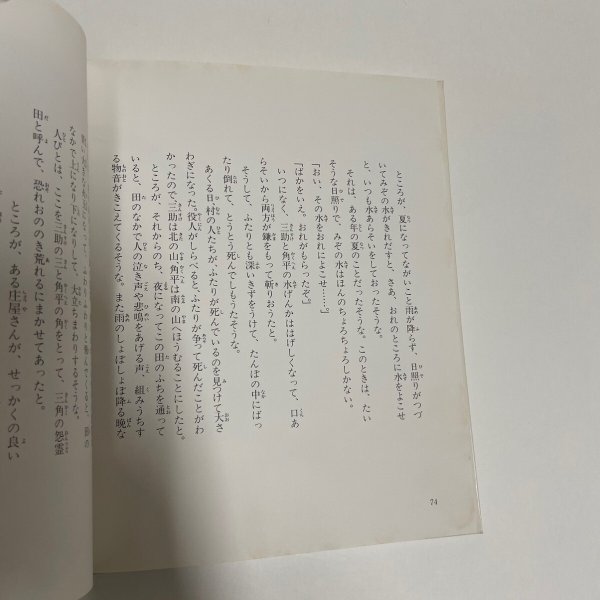 ところが、夏になってながいこと雨が降らず、日照りがつづ
いてみぞの水がきれだすと、さあ、おれのところに水をよこせ
と、いつも水あらそいをしておったそうな。
それは、ある年の夏のことだったそうな。このときは、たい
そうな日照りで、みぞの水はほんのちょろちょろしかない。
「おい、その水をおれによこせ……。」
「ばかをいえ。おれがもらったぞ」
いつになく、三助と角平の水げんかははげしくなって、口あ
らそいから両方が鎌をもって斬りおうたと。
そうして、ふたりとも深いきずをうけて、たんぼの中にばっ
たり倒れて、とうとう死んでしもうたそうな。
あくる日、村の人たちが、ふたりが死んでいるのを見つけて大さ
わぎになった。役人がしらべると、ふたりが争って死んだことがわ
かったので、三助は北の山、角平は南の山へほうむることにしたと。
ところが、それからのち、夜になってこの田のふちを通って
いると、田のなかで人の泣き声や悲鳴をあげる声、組みうちす
る物音がきこえてくるそうな。また雨のしょぼしょぼ降る晩な
74
なかで上になり下になりして、大立ちまわりするそうな。
人びとは、ここを三助の三と角平の角をとって、三角の怨霊
田と呼んで、恐れおののき荒れるにまかせてあったと。
ところが、ある庄屋さんが、せっかくの良い